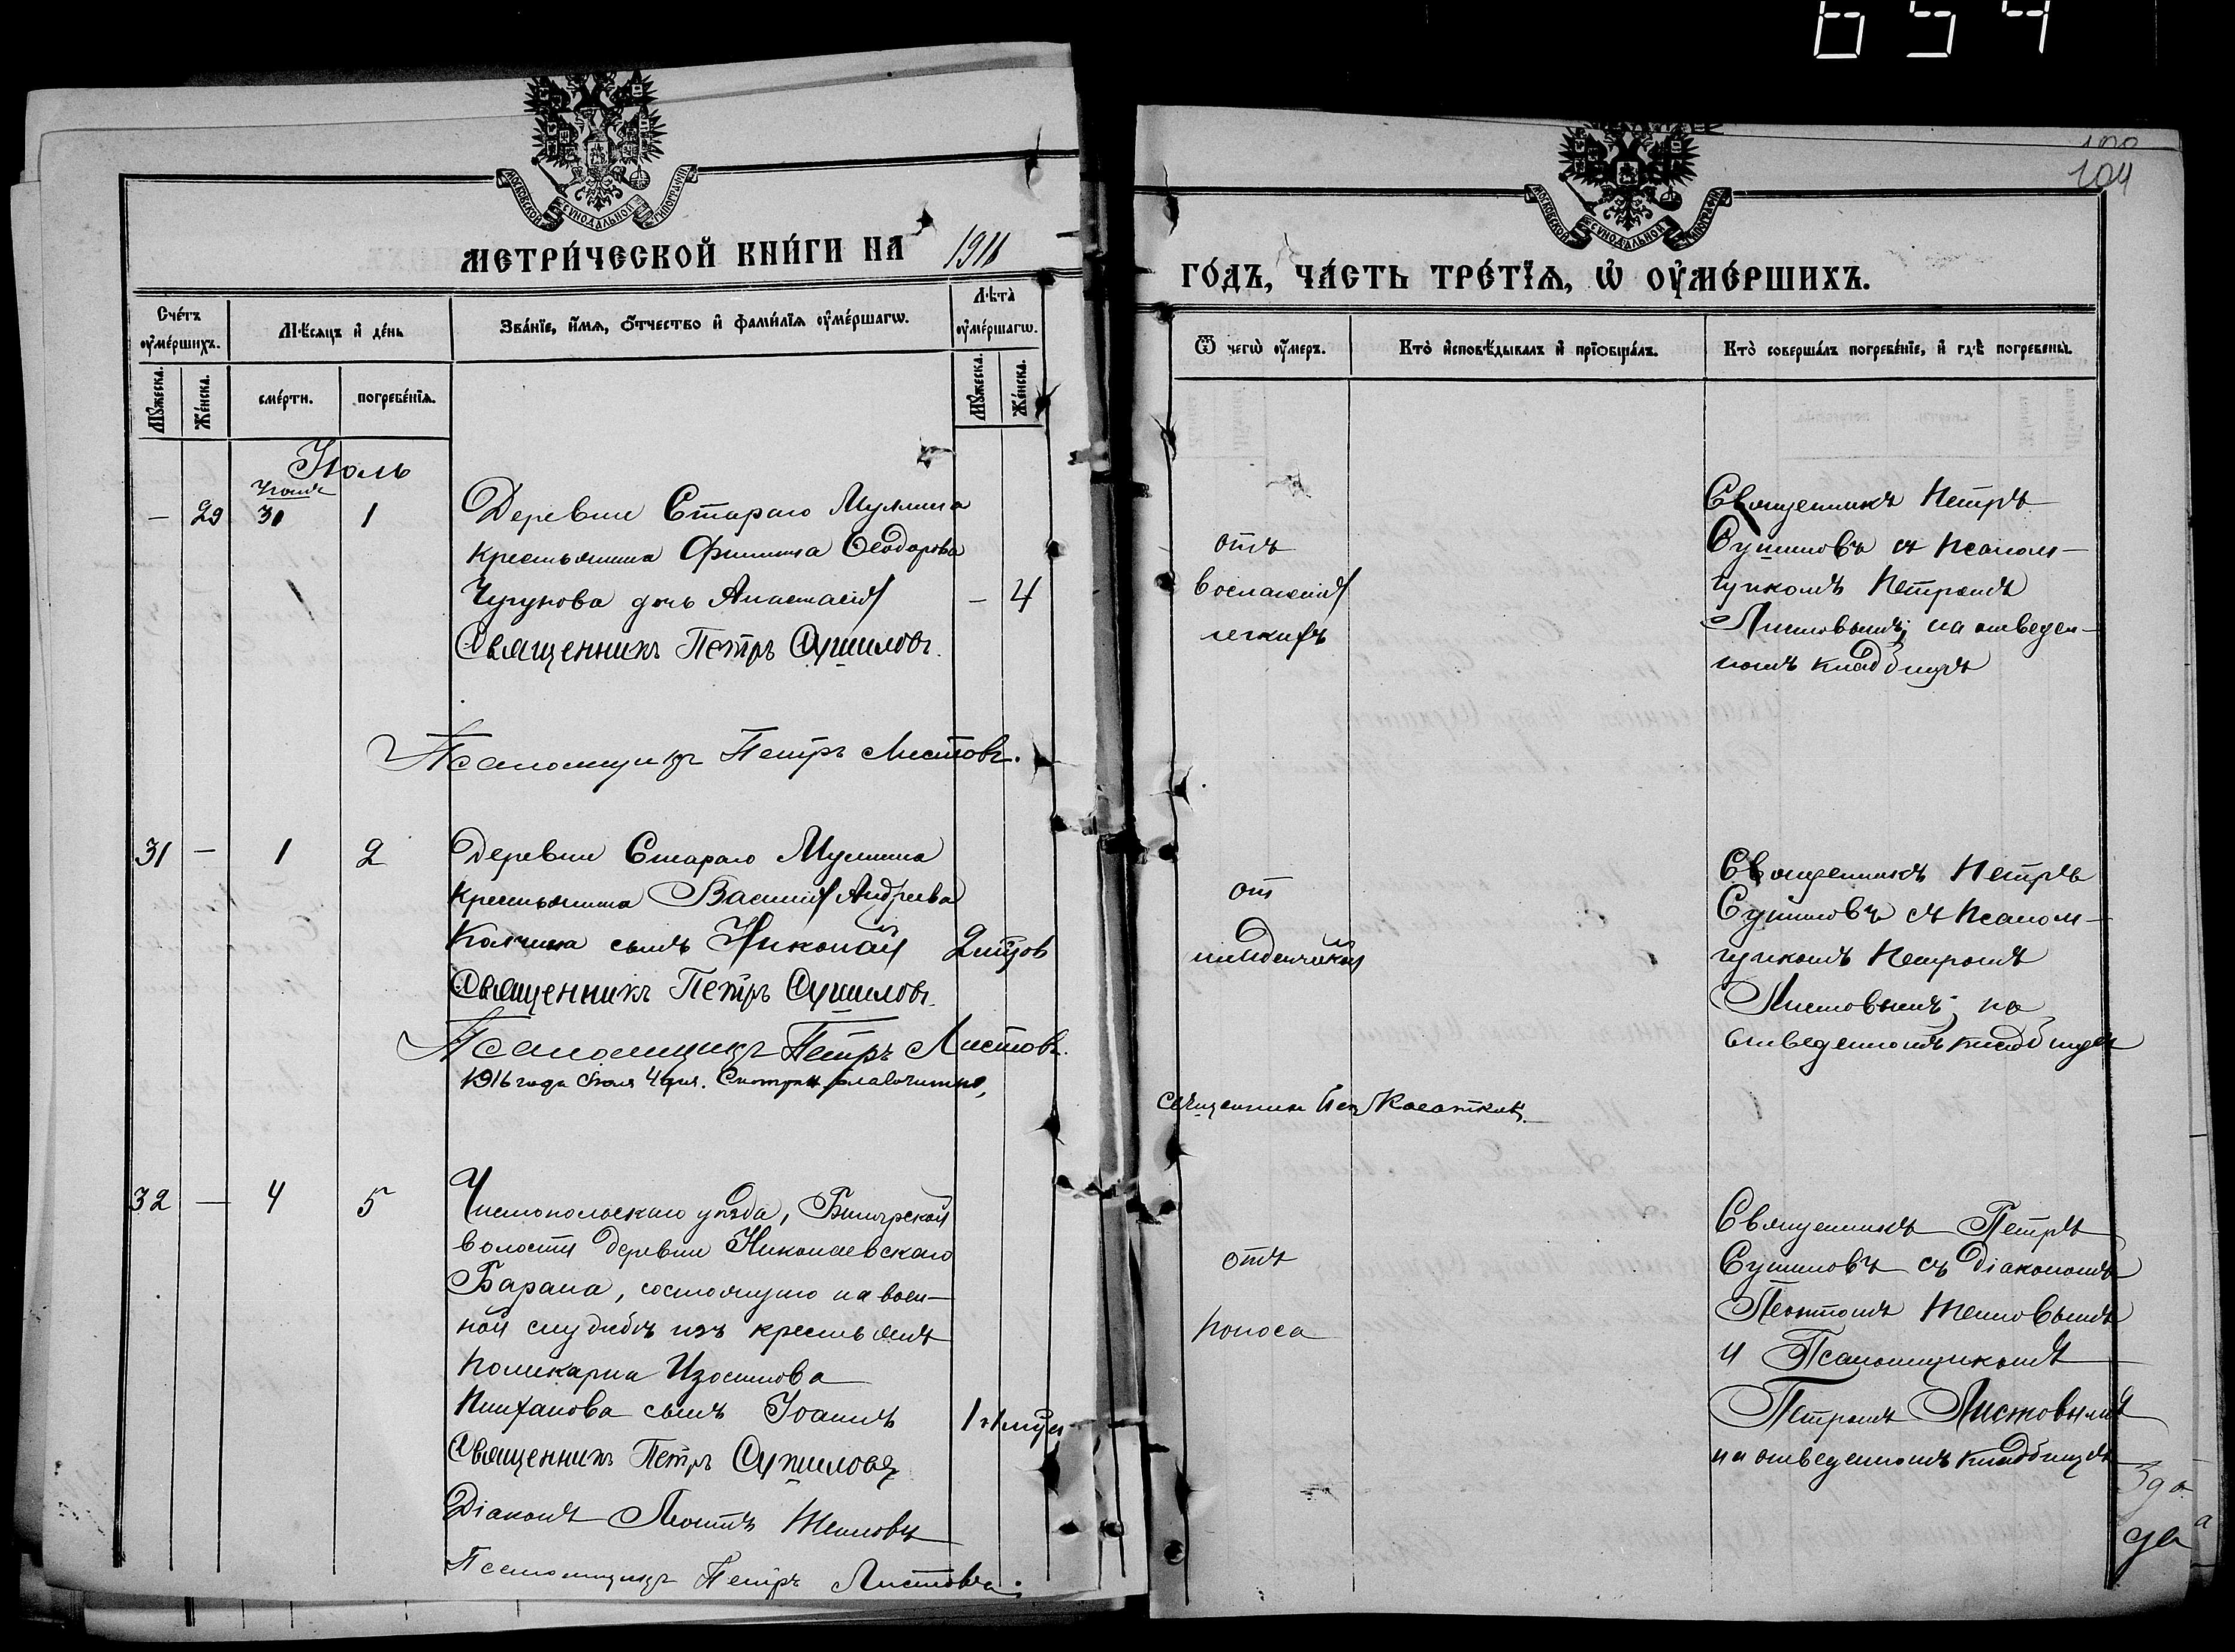 654
104
МОСКОВСКОЙ СУНОДАЛЬНОЙ ТИПОГРАФІИ
МЕТРИ́ЧЕСКОЙ КНИ́ГИ НА 1911
МОСКОВСКОЙ СУНОДАЛЬНОЙ ТИПОГРАФІИ
ГО́ДЪ, ЧА́СТЬ ТРЕ́ТЇѦ, Ѡ ОУ҆МЕ́РШИХЪ.
Сче́тъ оу҆ме́ршихъ.
Мѣ́сяцъ и҆ де́нь
Зва́нїе, и҆́мя, ѻ҆́тчество и҆ фами́лїя оу҆ме́ршагѡ.
Лѣ́та оу҆ме́ршагѡ.
Му́жеска.
Же́нска.
сме́рти.
погребе́нїя.
Му́жеска.
Же́нска.
Ѿ чегѡ̀ оу҆́меръ.
Кто̀ и҆сповѣ́дывалъ и҆ прїѻбща́лъ.
Кто̀ соверша́лъ погребе́нїе, и҆ гдѣ̀ погребены̀.
Іюль
Іюня
— 29 30 1
Деревни Стараго Мулина
крестьянина Филиппа Ѳеодорова
Чугунова дочь Анастасія — 4
Священникъ Петръ Сушиловъ.
Псаломщикъ Петръ Листовъ.
отъ
воспаленія
легкихъ
Священникъ Петръ
Сушиловъ съ псалом-
щикомъ Петромъ
Листовымъ; на отведен-
номъ кладбищѣ
31 — 1 2
Деревни Стараго Мулина
крестьянина Василія Андреева
Колчина сынъ Николай 2 мѣсяцов
Священникъ Петръ Сушиловъ.
Псаломщикъ Петръ Листовъ.
1916 года Іюля 4 дня. Смотрѣлъ благочинный,
Священникъ Касаткинъ
от
младенческой
Священникъ Петръ
Сушиловъ съ псалом-
щикомъ Петромъ
Листовымъ; на
отведенномъ кладбищѣ
32 — 4 5
Чистопольскаго уѣзда, Билярской
волости деревни Николаевскаго
Барана, состоящаго на воен-
ной службѣ изъ крестьянъ
Поликарпа Изосимова
сынъ Іоаннъ
Священникъ Петръ Сушиловъ
Діаконъ Леонтъ
Псаломщикъ Петръ Листовъ.
отъ
поноса
Священникъ Петръ
Сушиловъ съ діакономъ
и Псаломщикомъ
Петромъ Листовымъ
на отведенномъ кладбищѣ